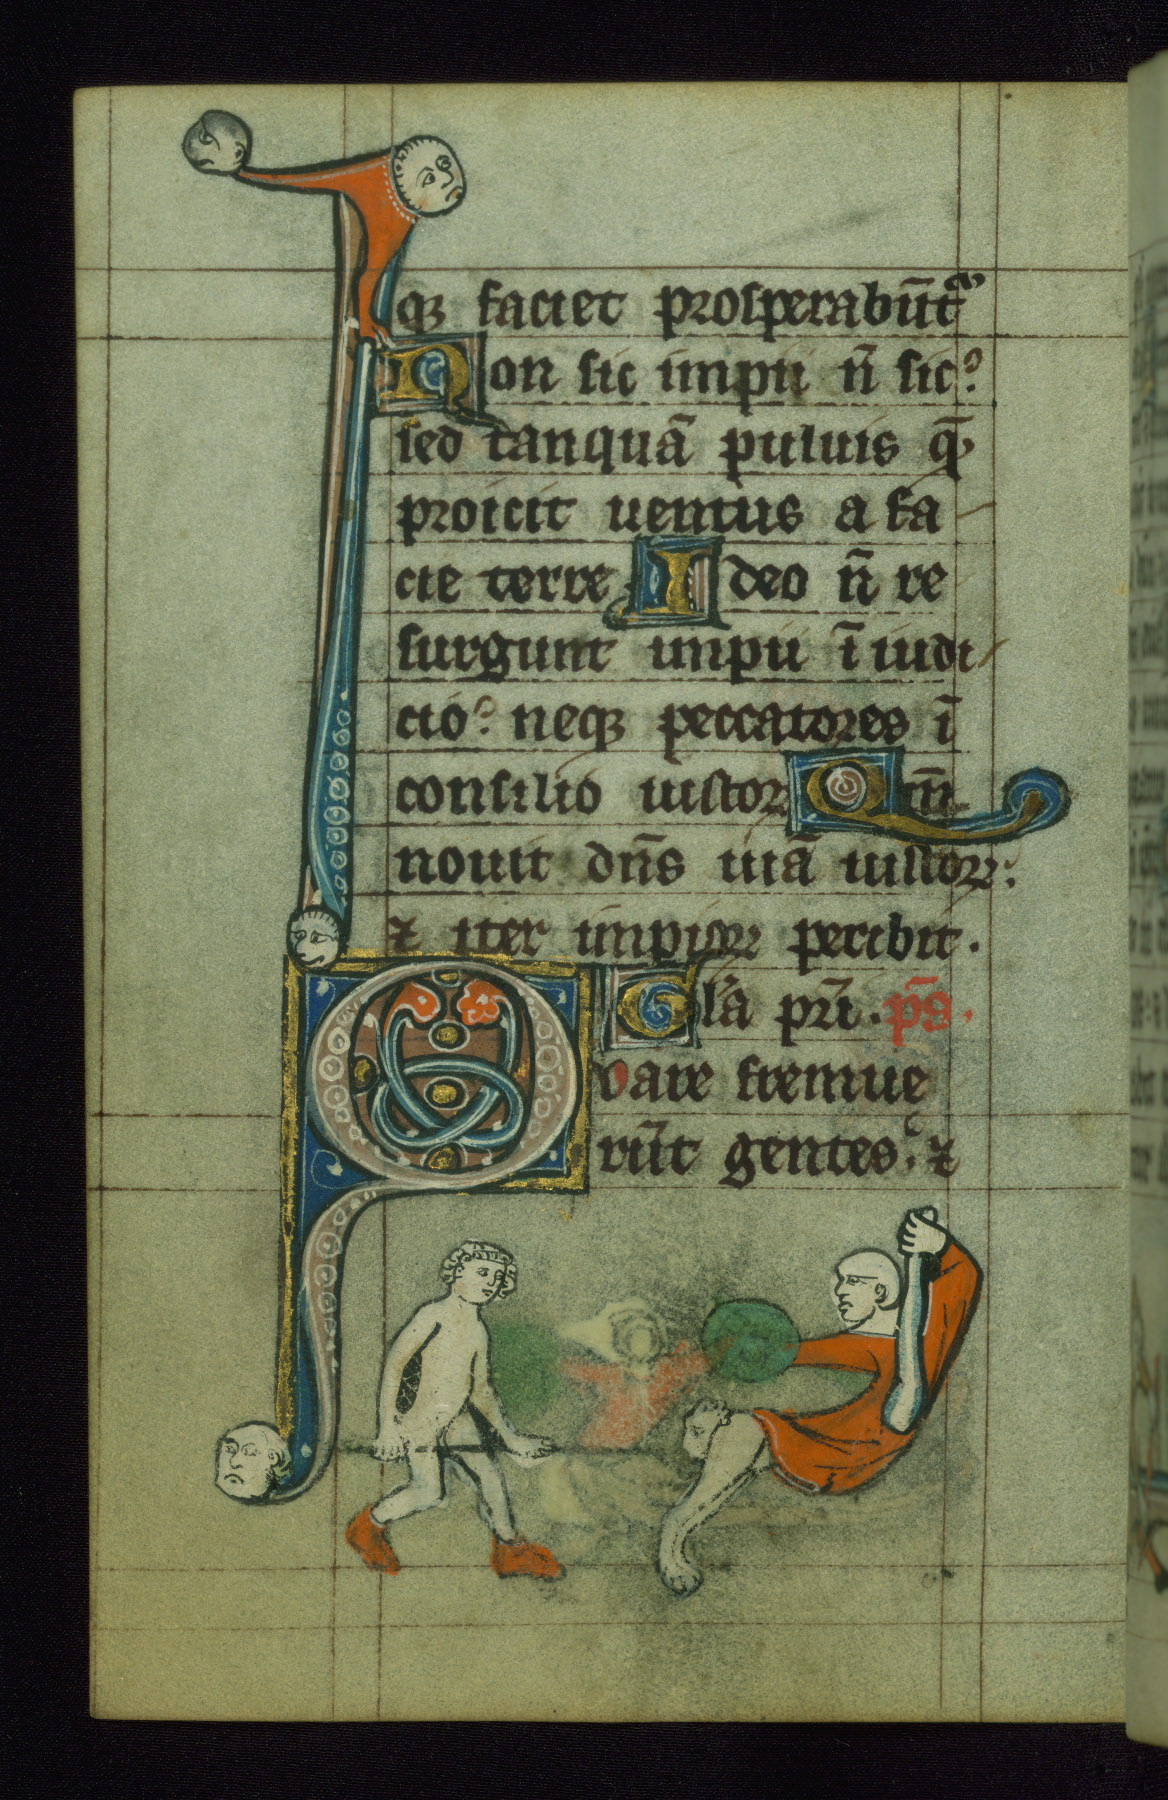 qꝫ faciet prosperabūtᷓ
Non sic impii n̄ sic:
sed tanquā puluis q̄
proicit uentus a fa
cie terre Ideo n̄ re
surgunt impii ī iudi
cio: neqꝫ peccatores ī
consilio iustoꝝ Qm̄
nouit dn̄s uiā iustoꝝ:
⁊ iter impioꝝ peribit.
Gl̄a pr̄i. ps̄.
Quare fremue
rūt gentes: ⁊